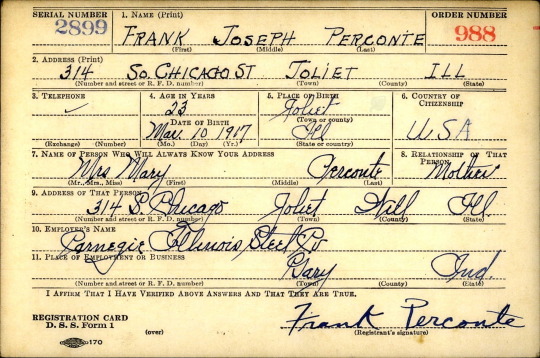 SERIAL NUMBER 1. NAME (Print) ORDER NUMBER
2899 FRANK JOSEPH PERCONTE 988
(First) (Middle) (Last)
2. ADDRESS (Print)
314 SO. CHICAGO ST JOLIET ILL
(Number and street or R. F. D. number) (Town) (County) (State)
3. TELEPHONE 4. AGE IN YEARS 5. PLACE OF BIRTH 6. COUNTRY OF CITIZENSHIP
✓ 23 Joliet
(Town or county)
DATE OF BIRTH
Mar. 10 1917 Ill USA
(Exchange) (Number) (Mo.) (Day) (Yr.) (State or country)
7. NAME OF PERSON WHO WILL ALWAYS KNOW YOUR ADDRESS 8. RELATIONSHIP OF THAT PERSON
Mrs Mary Perconte Mother
(Mr., Mrs., Miss) (First) (Middle) (Last)
9. ADDRESS OF THAT PERSON
314 S. Chicago Joliet Will Ill.
(Number and street or R. F. D. number) (Town) (County) (State)
10. EMPLOYER'S NAME
Carnegie Illinois Steel Co
11. PLACE OF EMPLOYMENT OR BUSINESS
Gary Ind.
(Number and street or R. F. D. number) (Town) (County) (State)
I AFFIRM THAT I HAVE VERIFIED ABOVE ANSWERS AND THAT THEY ARE TRUE.
REGISTRATION CARD
D. S. S. Form 1 (over) Frank Perconte
(Registrant's signature)
170